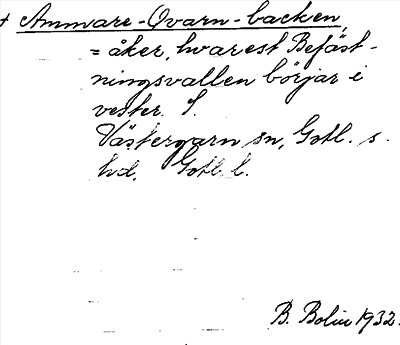 + Ammare-Qvarn-backen,
= åker, hvarest Befäst-
ningsvallen börjar i
vester. S.
Västergarn sn, Gotl. s.
hd. Gotl. l.
B. Bolin 1932.